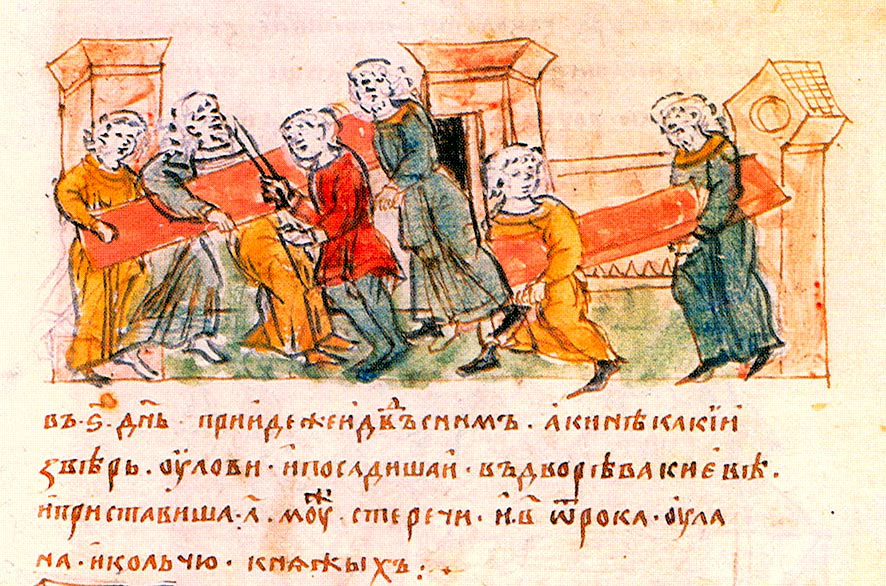 въ·ѕ҃·дн҃ь·прииде же и дв҃дъ с нимъ·акинѣкакїи
звѣрь·оулови·и посадиша и·въ дворѣ в Акиєвѣ·
и приставиша·л҃·моуⷤ·стеречи·и·в҃·ѿрока·оула
на·и кольчю·княжыхъ·